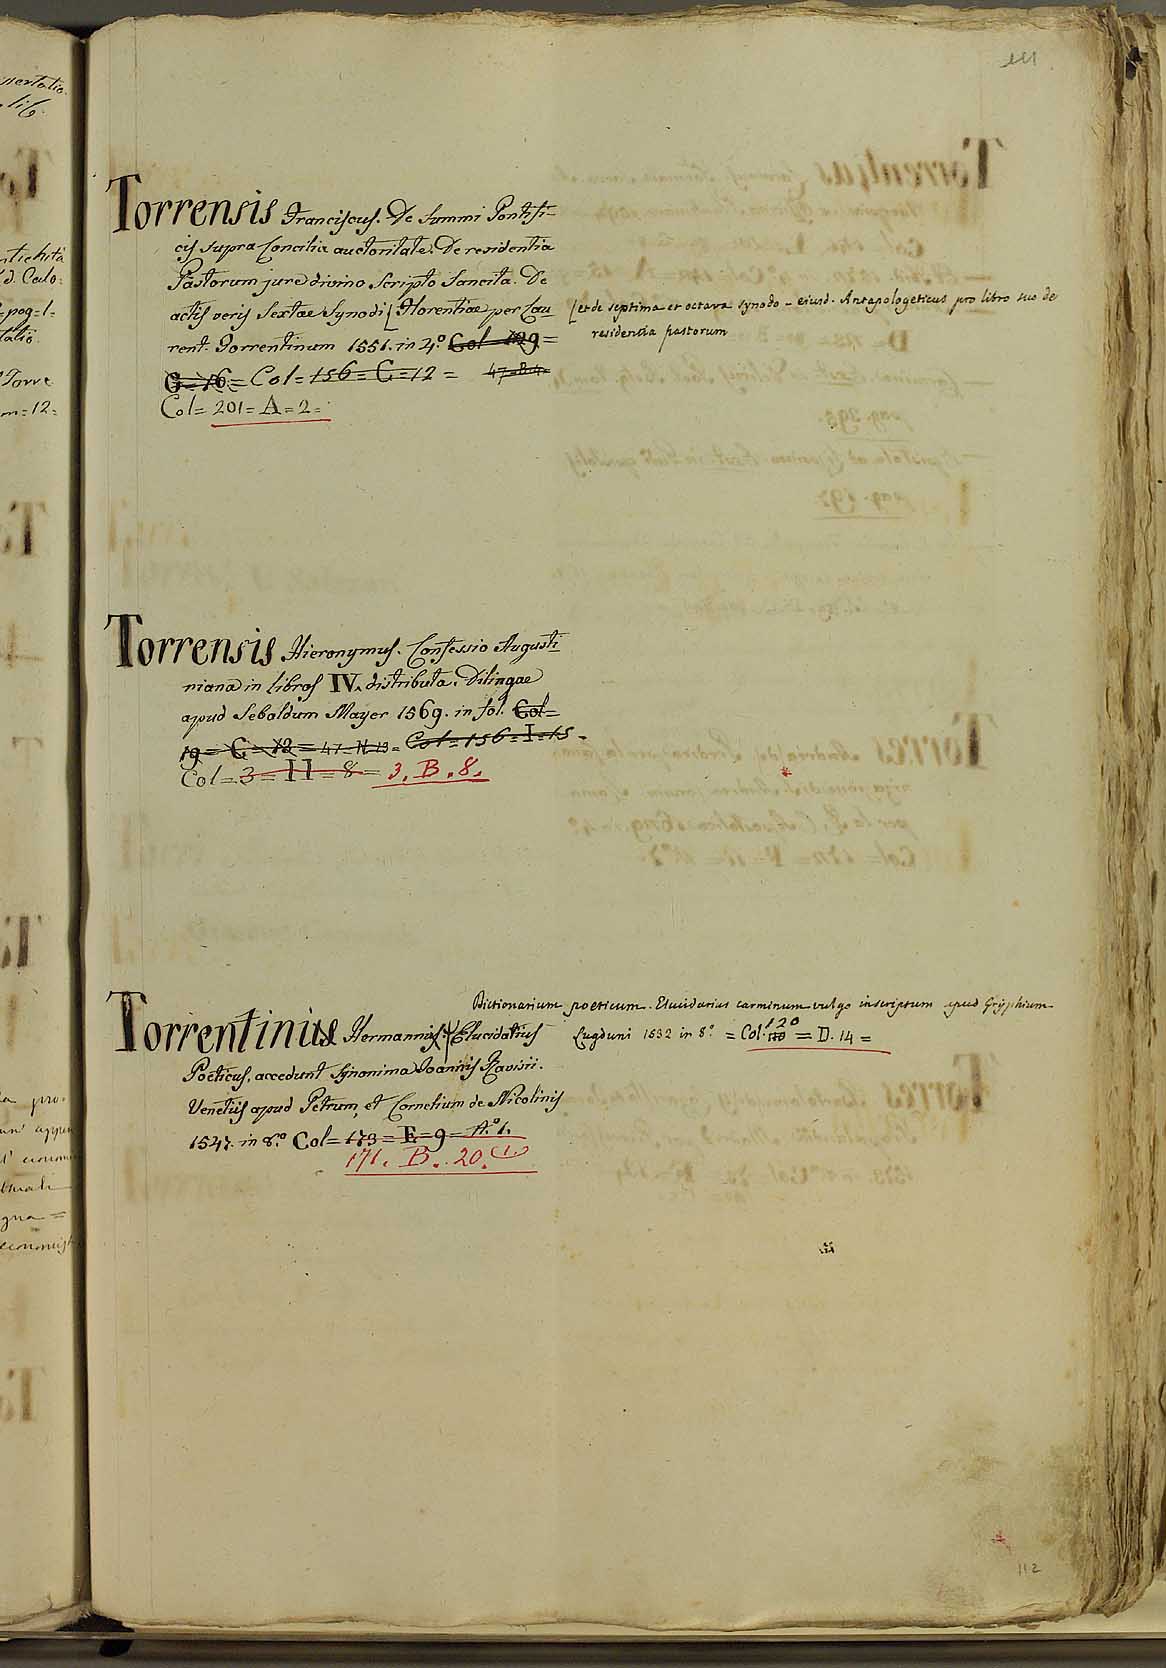 111
Torrensis Franciscus. De Summi Pontifi-
cis supra Concilia auctoritate. De residentia
Pastorum jure divino Scripto Sancita. De
actis veris Sextae Synodi [Florentiae per Lau
[et de septima et octava synodo - eiusd. Antapologeticus pro libro suo de
residentia pastorum
rent. Torrentinum 1551. in 4.º Col 129=
G=16= Col=156=C=12= 47=B.4=
Col= 201=A=2=
Torrensis Hieronymus. Confessio Augusti
niana in libros IV. distributa. Dilingae
apud Sebaldum Mayer 1569. in fol. Col=
19=C=12= 47=N.13= Col=156=I=15=
Col=3=H=8= 3. B. 8.
Dictionarium poeticum. Elucidarius carminum vulgo inscriptum apud Gryphium
Torrentinius Hermannus. Elucidarius
Lugduni 1532 in 8.º = Col. 120 = D. 14 =
Poeticus, accedunt Synonima Joannis Ravisii.
Venetiis apud Petrum, et Cornelium de Nicolinis
1547. in 8.º Col=173=E=9=N.º 1.
171. B. 20. (1.
112